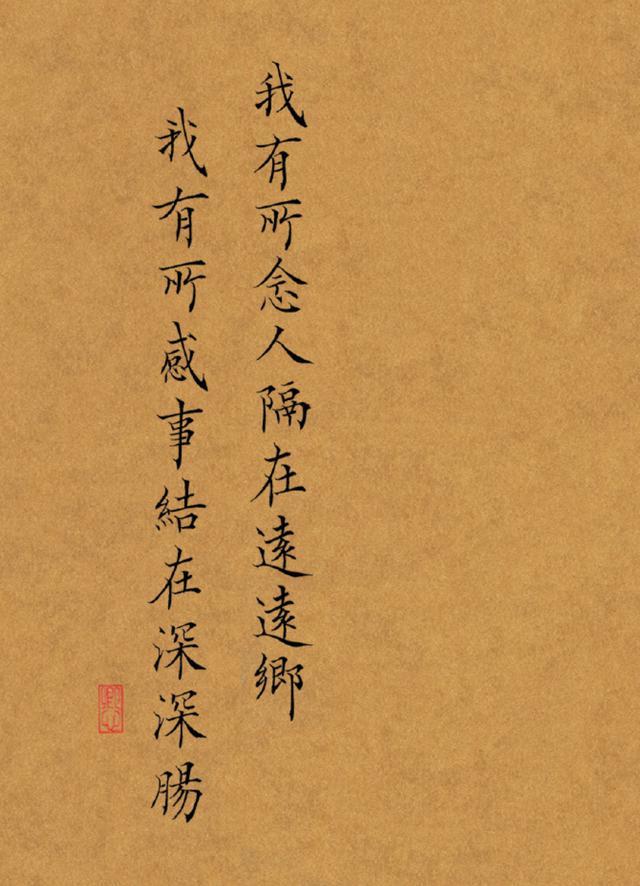 我有所念人隔在遠遠鄉
我有所感事結在深深腸